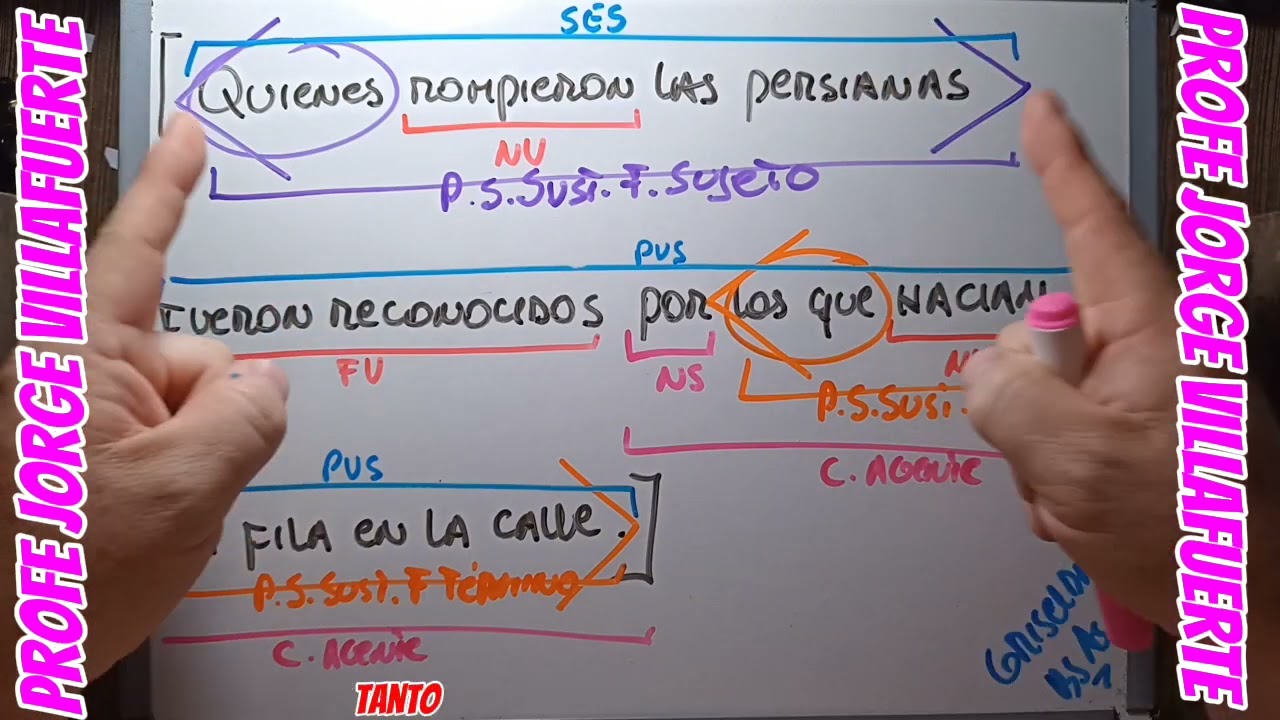 PROFE JORGE VILLAFUERTE
SES
QUIENES ROMPIERON LAS PERSIANAS
NV
P.S.SUST.F.SUJETO
PVS
FUERON RECONOCIDOS POR LOS QUE HACIAN
FV
NS
P.S.SUST.
C. AGENTE
PVS
FILA EN LA CALLE.
P.S.SUST.F TÉRMINO
C. AGENTE
BS AS
TANTO
PROFE JORGE VILLAFUERTE